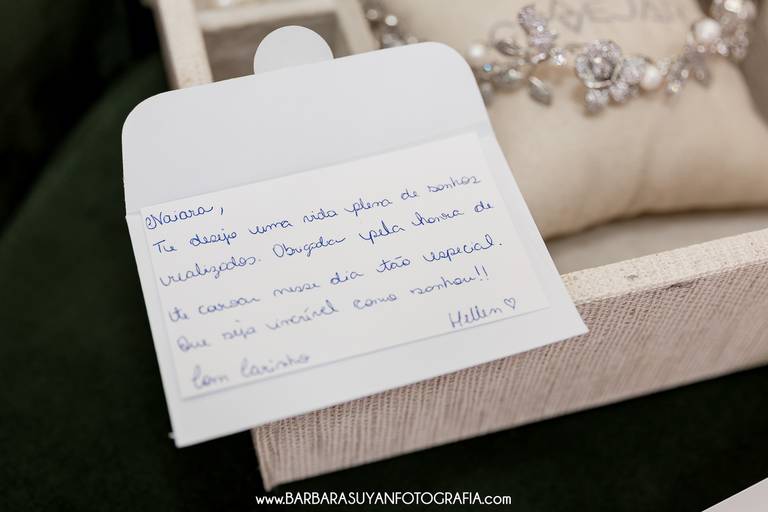 Naiara,
Te desejo uma vida plena de sonhos
realizados. Obrigada pela honra de
te coroar nesse dia tão especial.
Que seja incrível como sonhou!!
Com Carinho
Hellen ♡
www.BARBARASUYANFOTOGRAFIA.COM